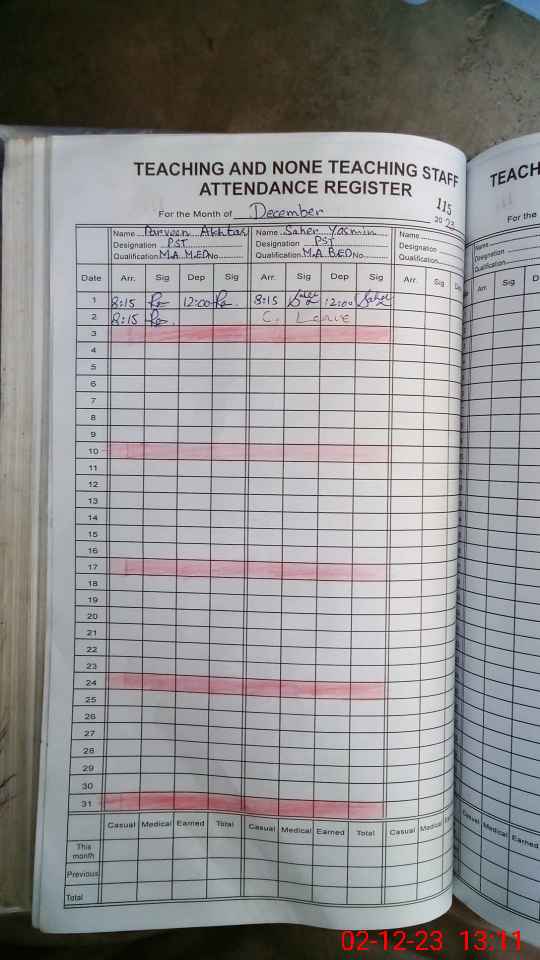 TEACHING AND NONE TEACHING STAFF
ATTENDANCE REGISTER
115
For the Month of December 2023
Name Parveen Akhtar Name Saher Yasmin Name
Designation PST Designation PST Designation
Qualification M.A M.ED No Qualification M.A B.ED No Qualification
Date Arr. Sig Dep Sig Arr. Sig Dep Sig Arr. Sig De
1 8:15 12:00 8:15 12:00 Saher
2 8:15 C. Leave
3
4
5
6
7
8
9
10
11
12
13
14
15
16
17
18
19
20
21
22
23
24
25
26
27
28
29
30
31
Casual Medical Earned Total Casual Medical Earned Total Casual Medical E
This month
Previous
Total
TEACH
For the
Name
Designation
Qualification
Arr Sig Dep
Casual Medical Earned
02-12-23 13:11